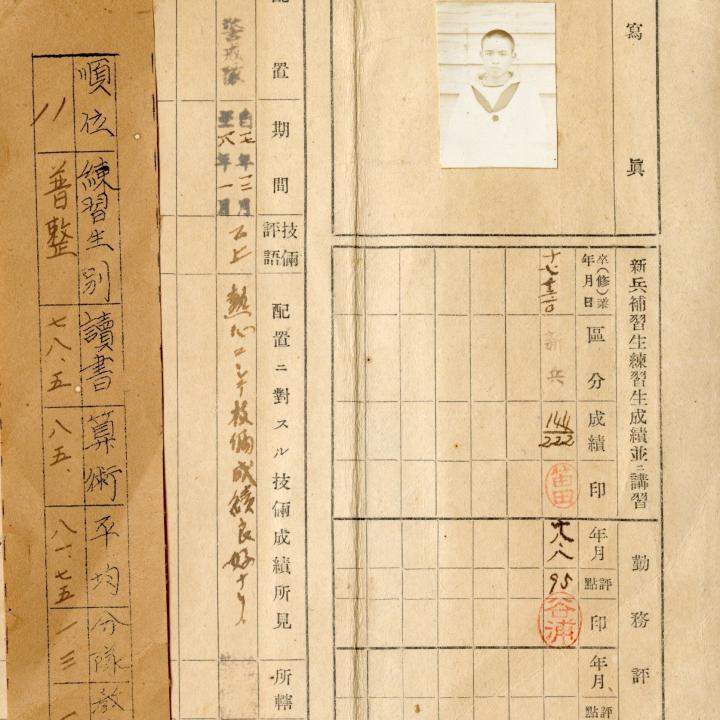 寫眞
新兵補習生練習生成績並ニ講習
卒(修)業年月日
區分
成績
印
新兵
144/222
笛田
勤務評
年月
評點
印
年月
評點
95
谷浦
配置
期間
技倆評語
配置ニ對スル技倆成績所見
所轄
警戒隊
自七年十二月
至八年一月
乙上
熱心ニシテ技倆成績良好ナリ
順位
練習生別
讀書
算術
平均
分隊
教
11
普整
七八.五
八五.
八一.七五
一三